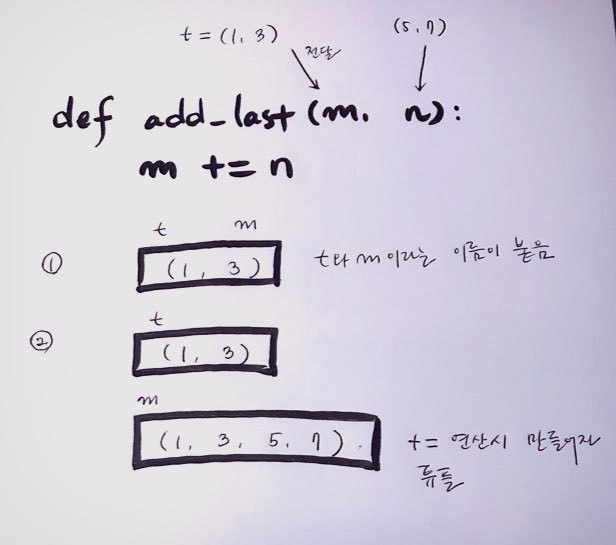 t = (1, 3)
(5, 7)
전달
def add_last (m, n):
m += n
t m
① (1, 3) t와 m이라는 이름이 붙음
t
② (1, 3)
m
(1, 3, 5, 7) += 연산시 만들어진
튜플